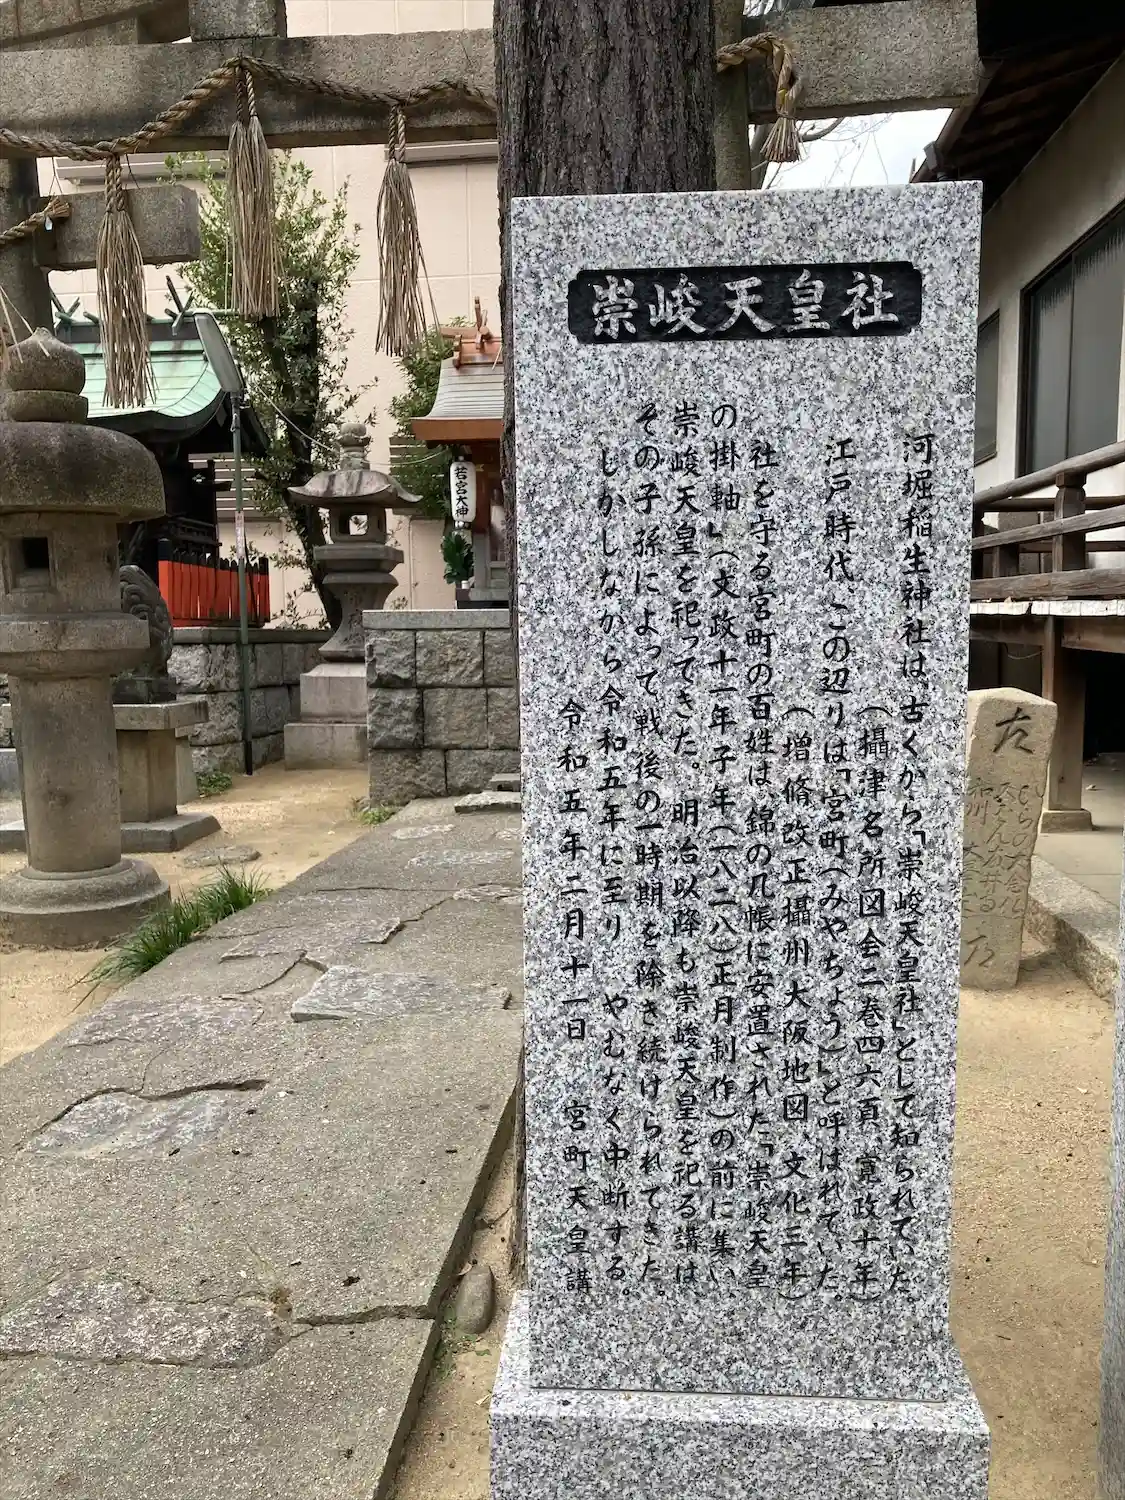 崇峻天皇社
河堀稲生神社は古くから「崇峻天皇社」として知られていた
(攝津名所図会二巻四六頁、寛政十年)
江戸時代、この辺りは「宮町(みやちょう)」と呼ばれていた。
(増脩改正攝州大阪地図、文化三年)
社を守る宮町の百姓は錦の几帳に安置された「崇峻天皇
の掛軸」(文政十一年子年(一八二八)正月制作)の前に集い、
崇峻天皇を祀ってきた。明治以降も崇峻天皇を祀る講は、
その子孫によって戦後の一時期を除き続けられてきた。
しかしながら令和五年に至り、やむなく中断する。
令和五年二月十一日 宮町天皇講
若宮大神
左